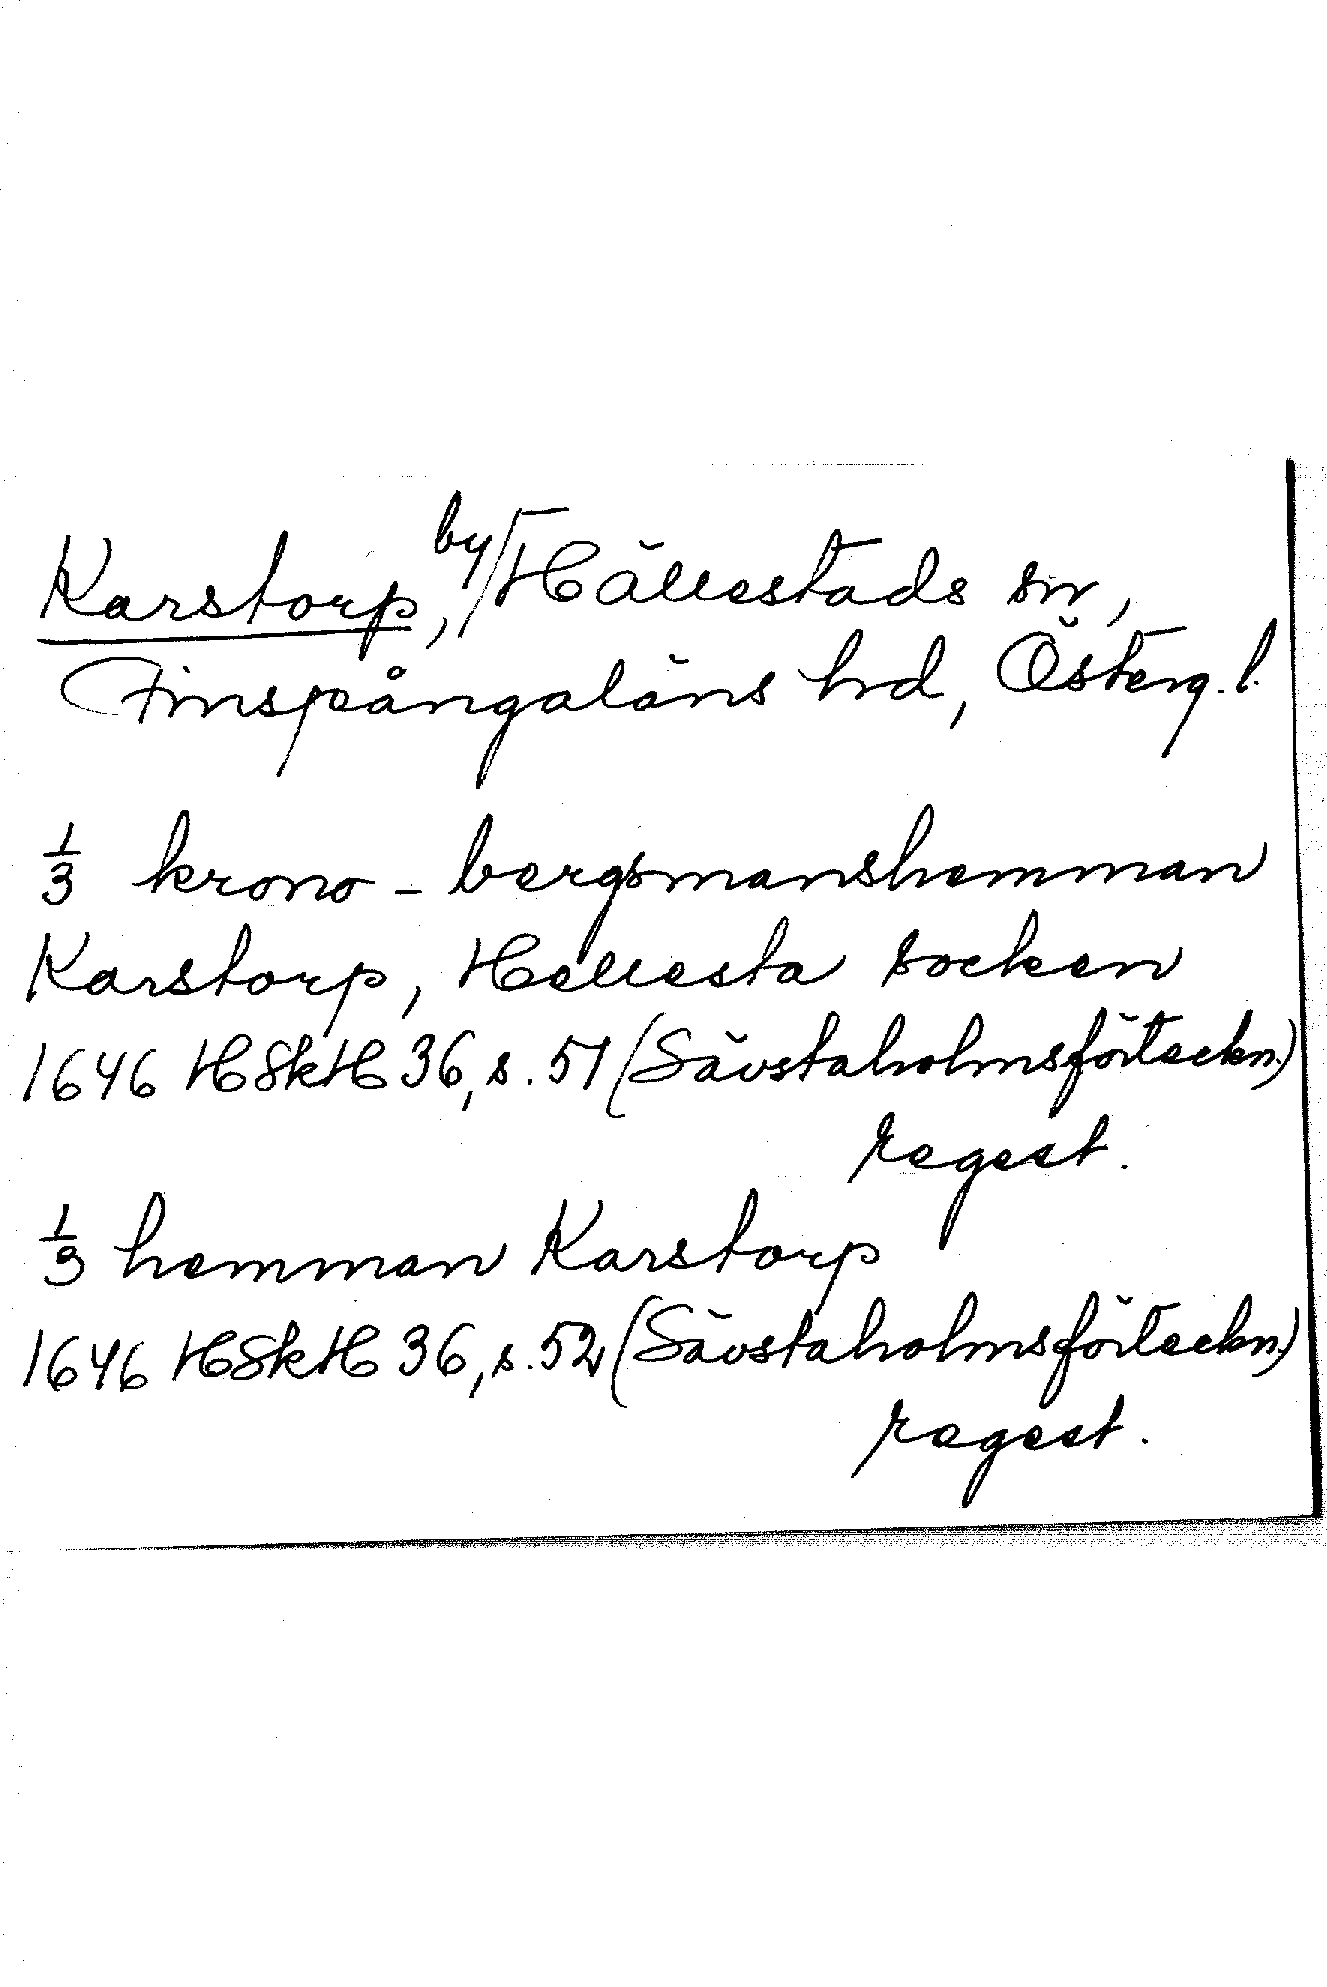 Karstorp, by/Hällestads sn,
Finspångaläns hd, Österg. l.
1/3 krono-bergsmanshemman
Karstorp, Hellesta socken
1646 HSkH 36, s. 51 (Sävstaholmsförteckn.)
regest.
1/3 hemman Karstorp
1646 HSkH 36, s. 52 (Sävstaholmsförteckn.)
regest.